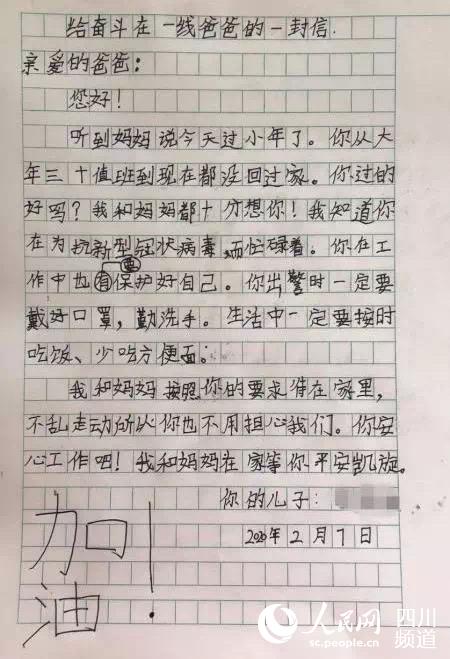 给奋斗在一线爸爸的一封信.
亲爱的爸爸:
您好!
听到妈妈说今天过小年了。你从大
年三十值班到现在都没回过家。你过的
好吗?我和妈妈都十分想你!我知道你
在为抗新型冠状病毒,而忙碌着。你在工
作中也要保护好自己。你出警时一定要
戴好口罩,勤洗手。生活中一定要按时
吃饭、少吃方便面。
我和妈妈按照你的要求待在家里,
不乱走动所以你也不用担心我们。你安
心工作吧!我和妈妈在家等你平安凯旋。
你的儿子:
2020年2月7日
加油!
人民网 四川频道
sc.people.cn